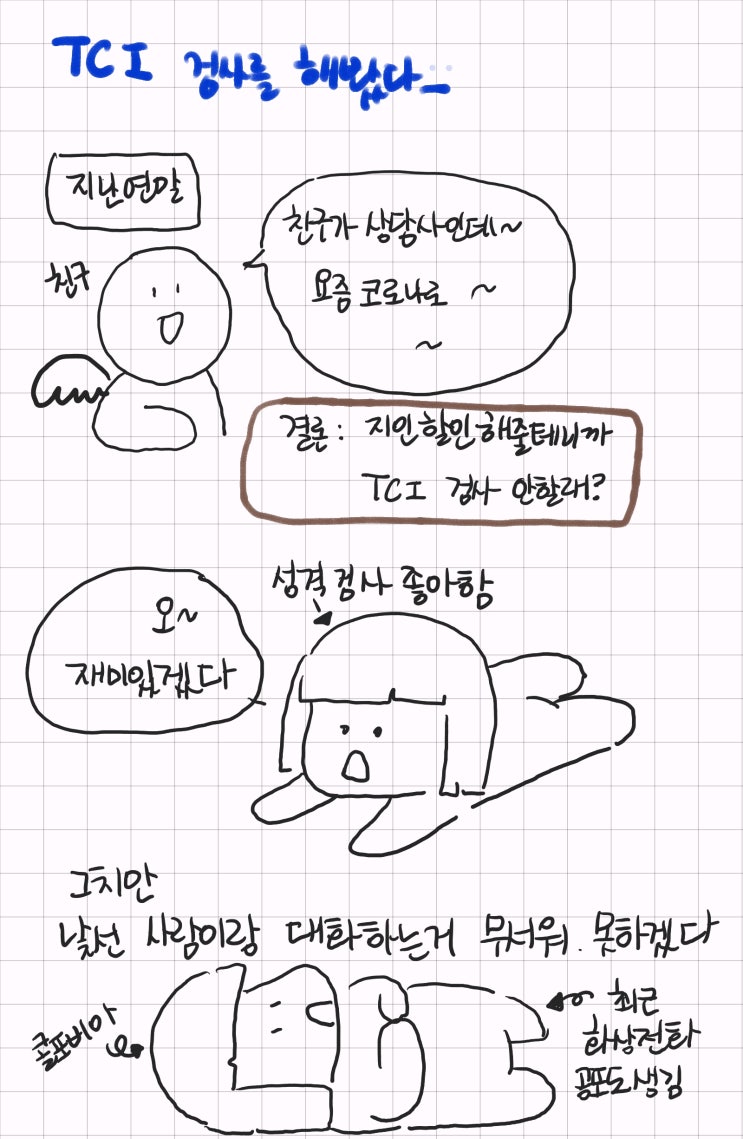 TCI 검사를 해봤다..
지난연말
친구
친구가 상담사인데~
요즘 코로나로 ~
~
결론: 지인할인해줄테니까
TCI 검사 안할래?
성격검사 좋아함
오~
재미있겠다
그치만
낯선 사람이랑 대화하는거 무서워. 못하겠다
콜포비아
최근
화상전화
공포도생김